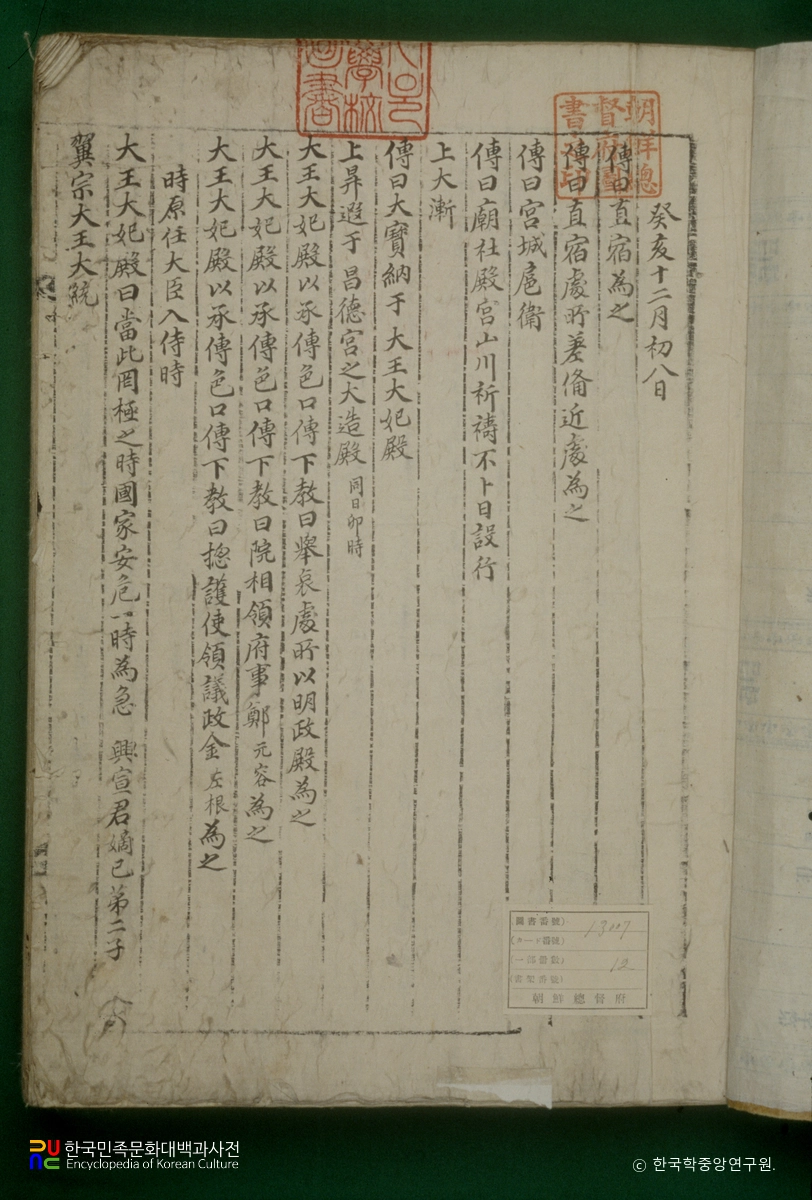 癸亥十二月初八日
傳曰直宿為之
傳曰直宿處所差備近處為之
傳曰宮城扈衛
傳曰廟社殿宮山川祈禱不卜日設行
上大漸
傳曰大寶納于 大王大妃殿
上昇遐于 昌德宮之大造殿 同日卯時
大王大妃殿以承傳色口傳下教曰舉哀處所以明政殿為之
大王大妃殿以承傳色口傳下教曰院相領府事鄭元容為之
大王大妃殿以承傳色口傳下教曰摠護使領議政金左根為之
時原任大臣入侍時
大王大妃殿曰當此罔極之時國家安危一時為急 興宣君嫡己第二子
翼宗大王大統
圖書番號
カード番號
一部冊數
朝鮮總督府
한국민족문화대백과사전
Encyclopedia of Korean Culture
ⓒ 한국학중앙연구원.